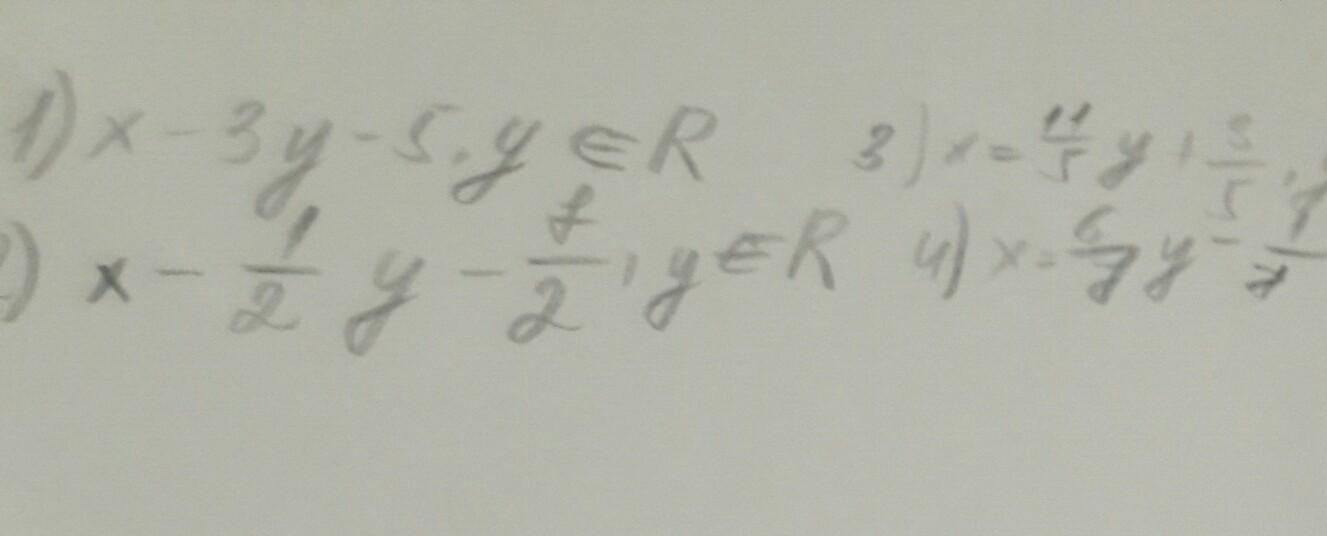 1) x - 3y - 5, y ∈ R 3) x = 11/5 y + 3/5, y
2) x - 1/2 y - 7/2, y ∈ R 4) x = 6/7 y - 1/7